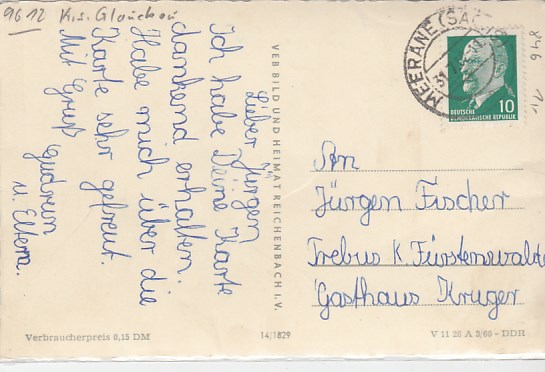 9612 Krs. Glauchau
Lieber Jürgen
Ich habe Deine Karte
dankend erhalten.
Habe mich über die
Karte sehr gefreut.
Mit Gruß Gudrun
u. Eltern.
VEB BILD UND HEIMAT REICHENBACH I. V.
MEERANE (SACHS)
10
DEUTSCHE
DEMOKRATISCHE REPUBLIK
An
Jürgen Fischer
Trebus K. Fürstenwalde
Gasthaus Kruger
Verbraucherpreis 0,15 DM
14/1829
V 11 28 A 3/60 - DDR